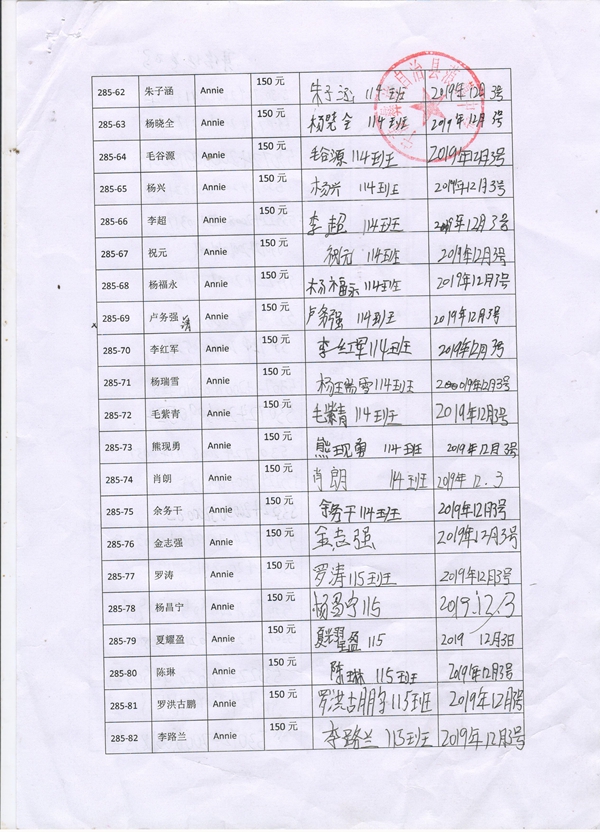 自治县
285-62 朱子涵 Annie 150 元 朱子涵 114班 2019年12月3号
285-63 杨晓全 Annie 150 元 杨晓全 114班 2019年12月3号
285-64 毛谷源 Annie 150 元 毛谷源 114班 2019年12月3号
285-65 杨兴 Annie 150 元 杨兴 114班 2019年12月3号
285-66 李超 Annie 150 元 李超 114班 2019年12月3号
285-67 祝元 Annie 150 元 祝元 114班 2019年12月3号
285-68 杨福永 Annie 150 元 杨福永 114班 2019年12月3号
285-69 卢务强 Annie 150 元 卢务强 114班 2019年12月3号
285-70 李红军 Annie 150 元 李红军 114班 2019年12月3号
285-71 杨瑞雪 Annie 150 元 杨瑞雪 114班 2019年12月3号
285-72 毛紫青 Annie 150 元 毛紫青 114班 2019年12月3号
285-73 熊现勇 Annie 150 元 熊现勇 114班 2019年12月3号
285-74 肖朗 Annie 150 元 肖朗 114班 2019年12.3
285-75 余务干 Annie 150 元 余务干 114班 2019年12月3号
285-76 金志强 Annie 150 元 金志强 2019年12月3号
285-77 罗涛 Annie 150 元 罗涛 115班 2019年12月3号
285-78 杨昌宁 Annie 150 元 杨昌宁 115 2019.12.3
285-79 夏耀盈 Annie 150 元 夏耀盈 115 2019 12月3日
285-80 陈琳 Annie 150 元 陈琳 115班 2019年12月3号
285-81 罗洪古鹏 Annie 150 元 罗洪古鹏 115班 2019年12月3号
285-82 李路兰 Annie 150 元 李路兰 115班 2019年12月3号